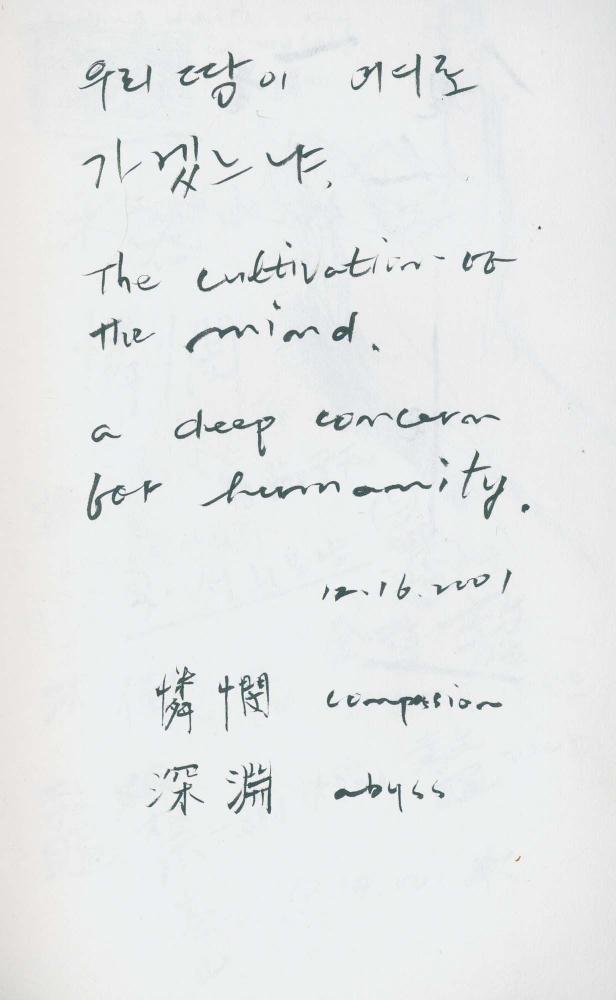 우리 땅이 어디로
가겠느냐.
The cultivation of
the mind.
a deep concern
for humanity.
12.16.2001
憐憫 compasion
深淵 abyss